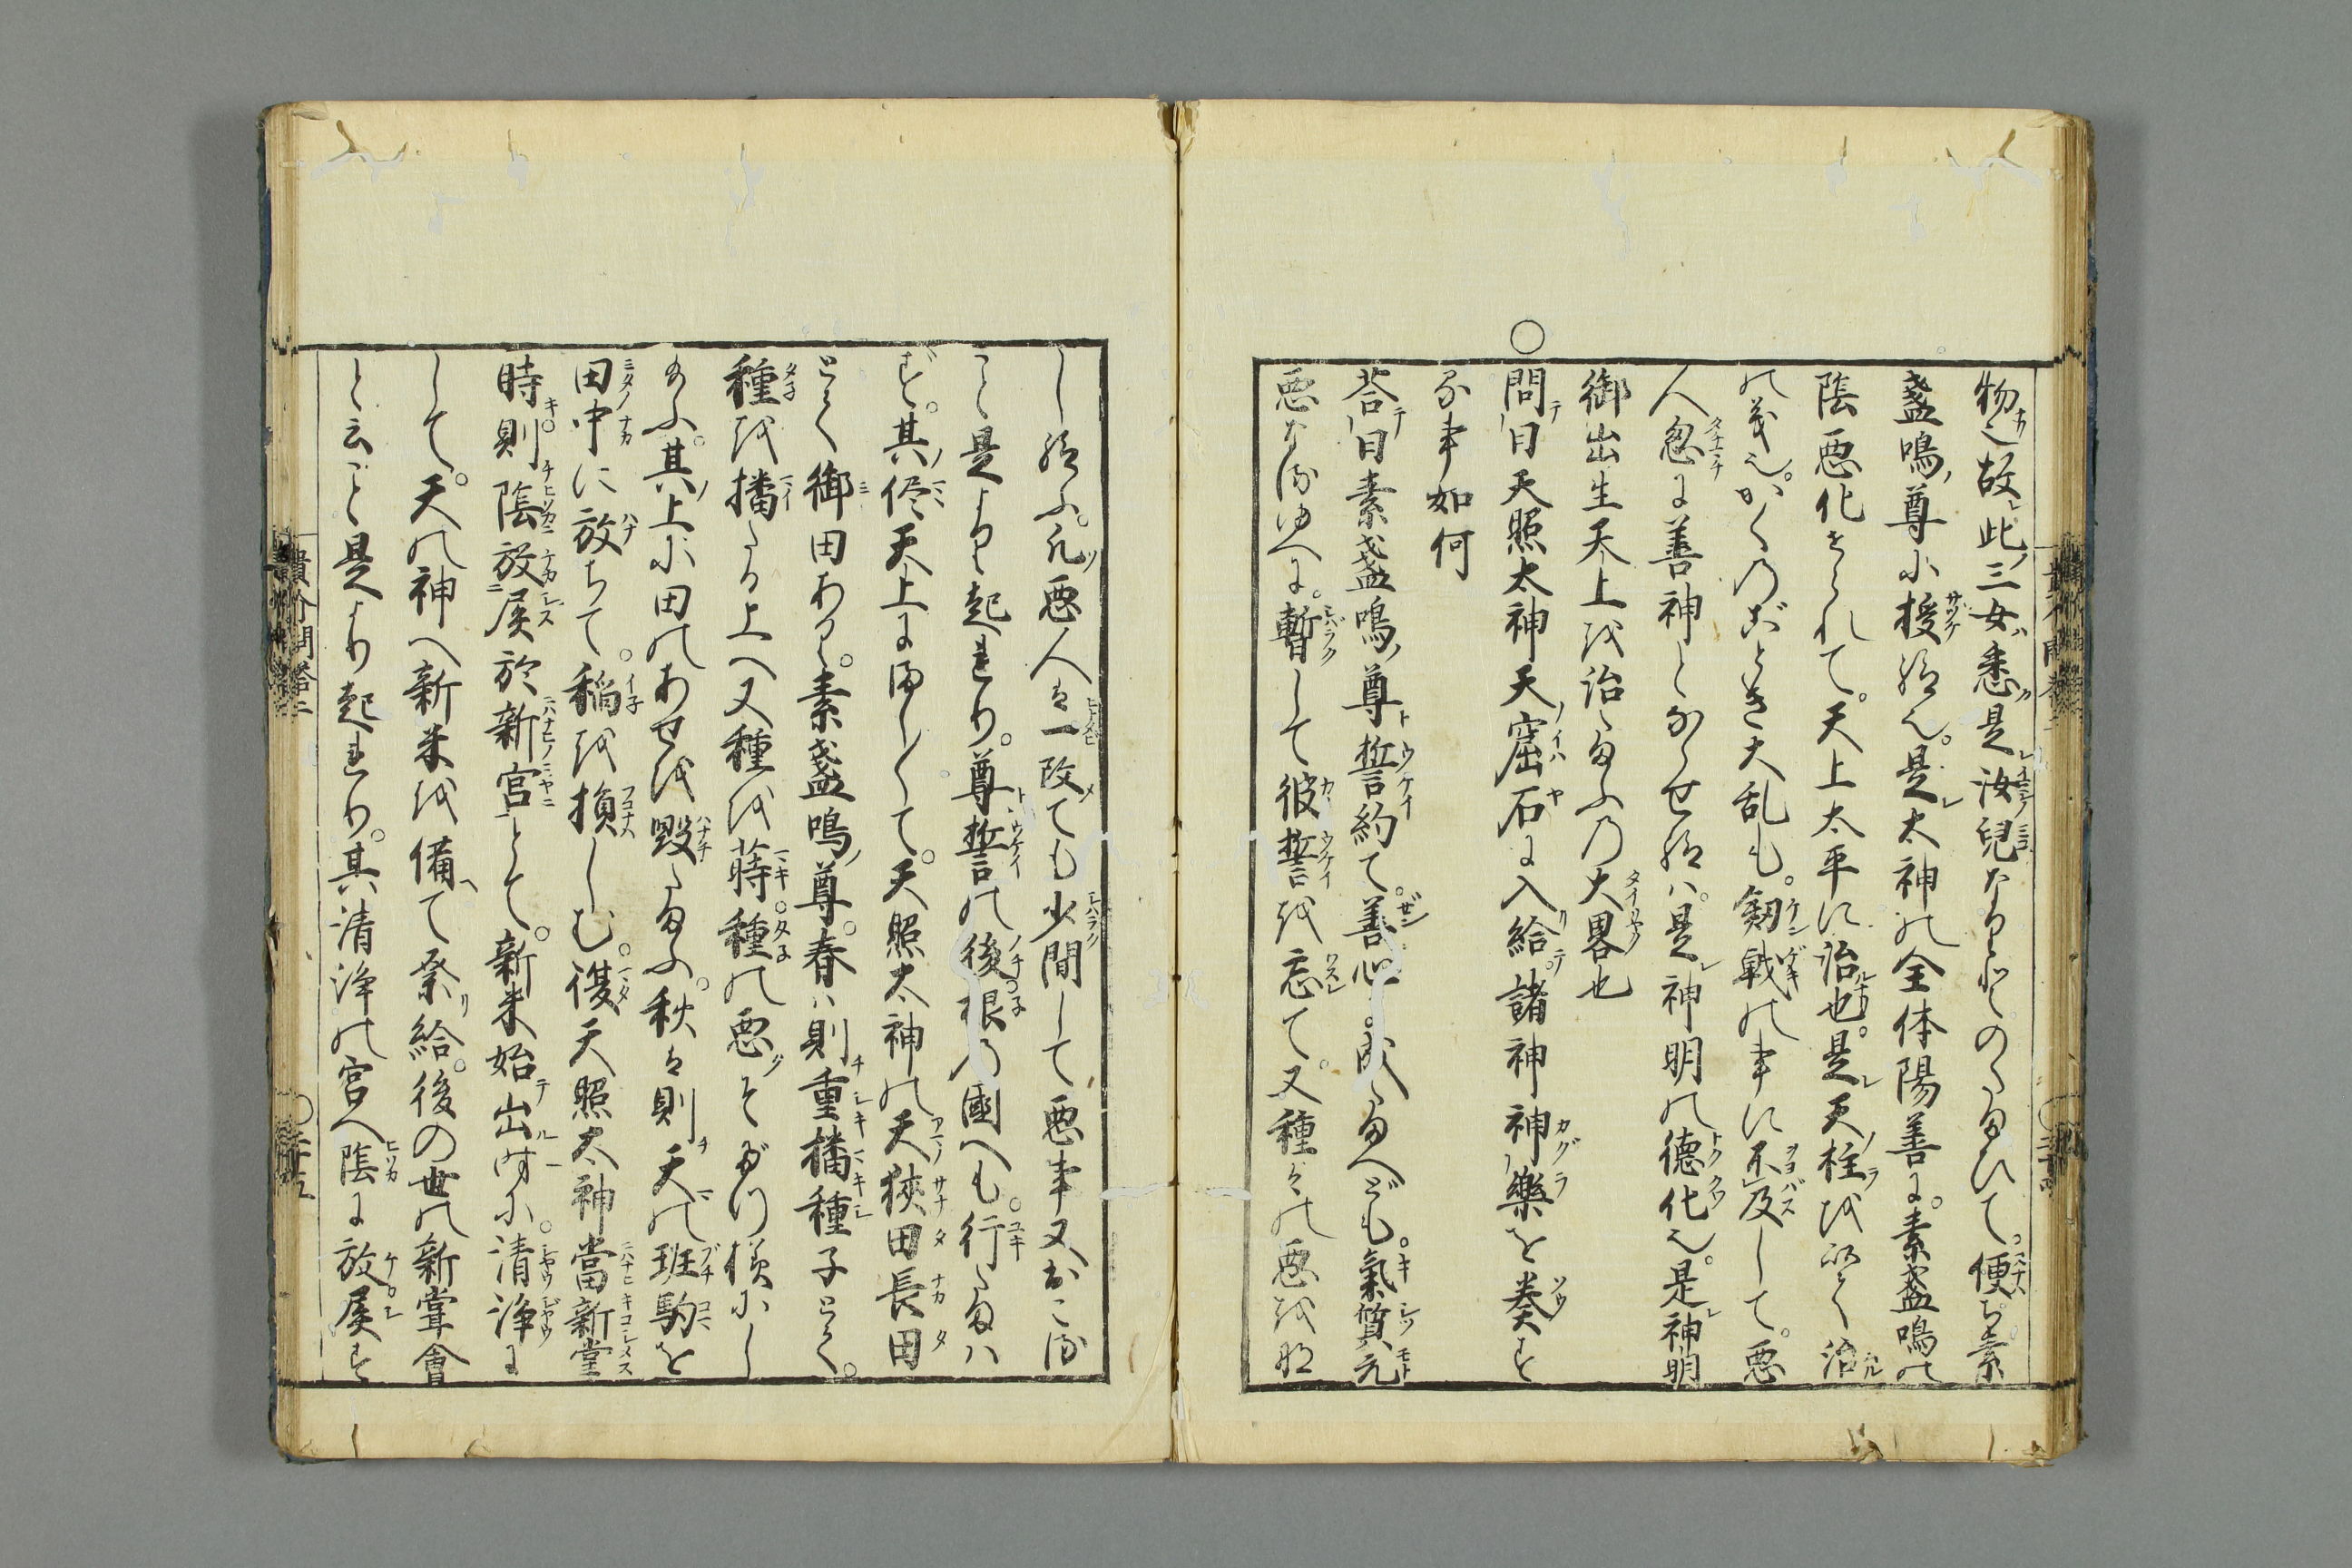 物也故此三女悉是汝兒なりとのたまひて。便ち素
盞嗚尊に授給ふ。是太神の全体陽善に。素盞嗚の
陰悪化せられて。天上太平に治也。是天柱を以て治
の義也。かくのごとき大乱も。劔戟の事に不及して。悪
人忽に善神とならせ給は。是神明の徳化也。是神明
御出生天上を治たふの大畧也
○問曰天照太神天窟石に入給諸神神樂を奏す
る事如何
荅曰素盞嗚尊誓約て。善心に成たまへども。氣質元
悪なるゆへに。暫して彼誓を忘て。又種々の悪を
し給ふ。凡悪人は一改ても少間して悪事又おこる
こと是より起れり。尊誓の後根の國へも。行たまは
ず。其侭天上にましまして。天照太神の天狹田長田
とて御田あり。素盞嗚尊。春は則重播種子とて。
種を播たる上へ又種を蒔。種の悪そだつ様にし
給ふ。其上に田のあせを毀たまふ。秋は則天の班駒を
田中に放ちて。稲を損しむ。復天照太神當新嘗
時則陰放㞎於新宮とて。新米始出時に。清浄に
して。天の神へ新米を備て祭給。後の世の新嘗會
と云こと是より起れり。其清浄の宮へ陰に放㞎す